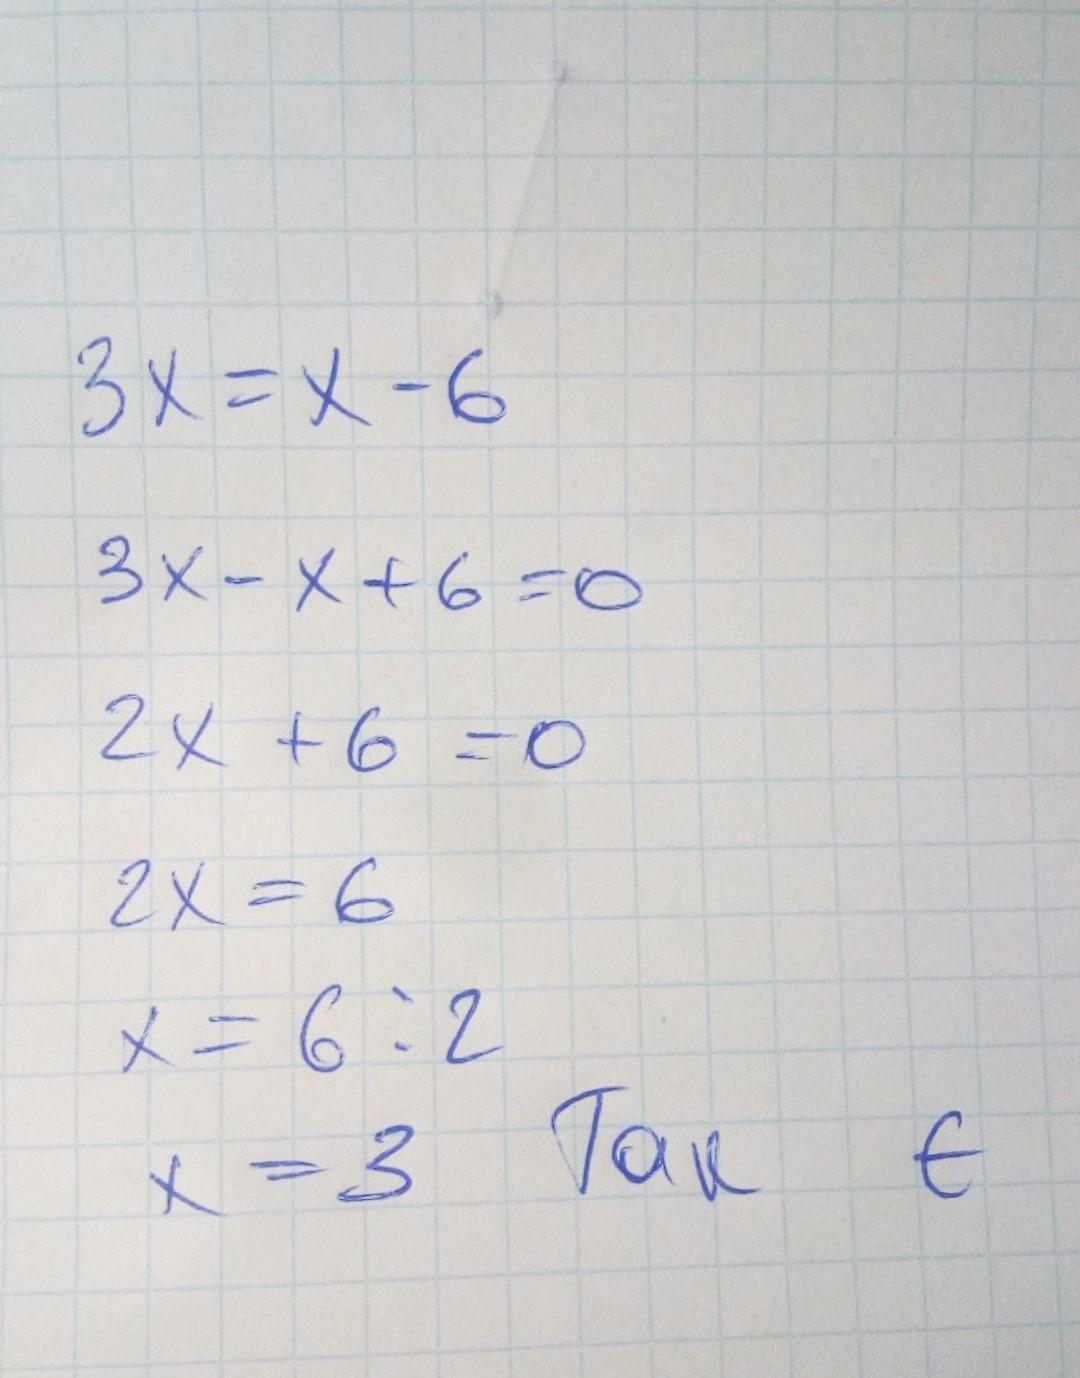 3x = x - 6
3x - x + 6 = 0
2x + 6 = 0
2x = 6
x = 6 : 2
x = 3 Так є